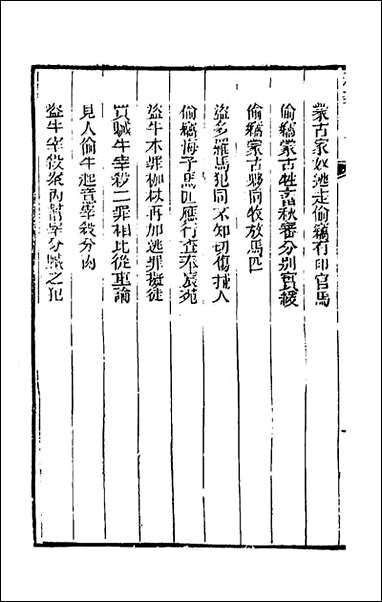 蒙古家奴逃走偷竊有印官馬
偷竊蒙古牲畜秋審分別實緩
偷竊蒙古夥同牧放馬匹
盜多羅馬犯同不知切傷捕人
偷竊海子馬匹應行查奉宸苑
盜牛本罪枷杖再加逃罪擬徒
買贓牛宰殺二罪相比從重論
見人偷牛起意宰殺分肉
盜牛宰殺案內幫宰分贓之犯